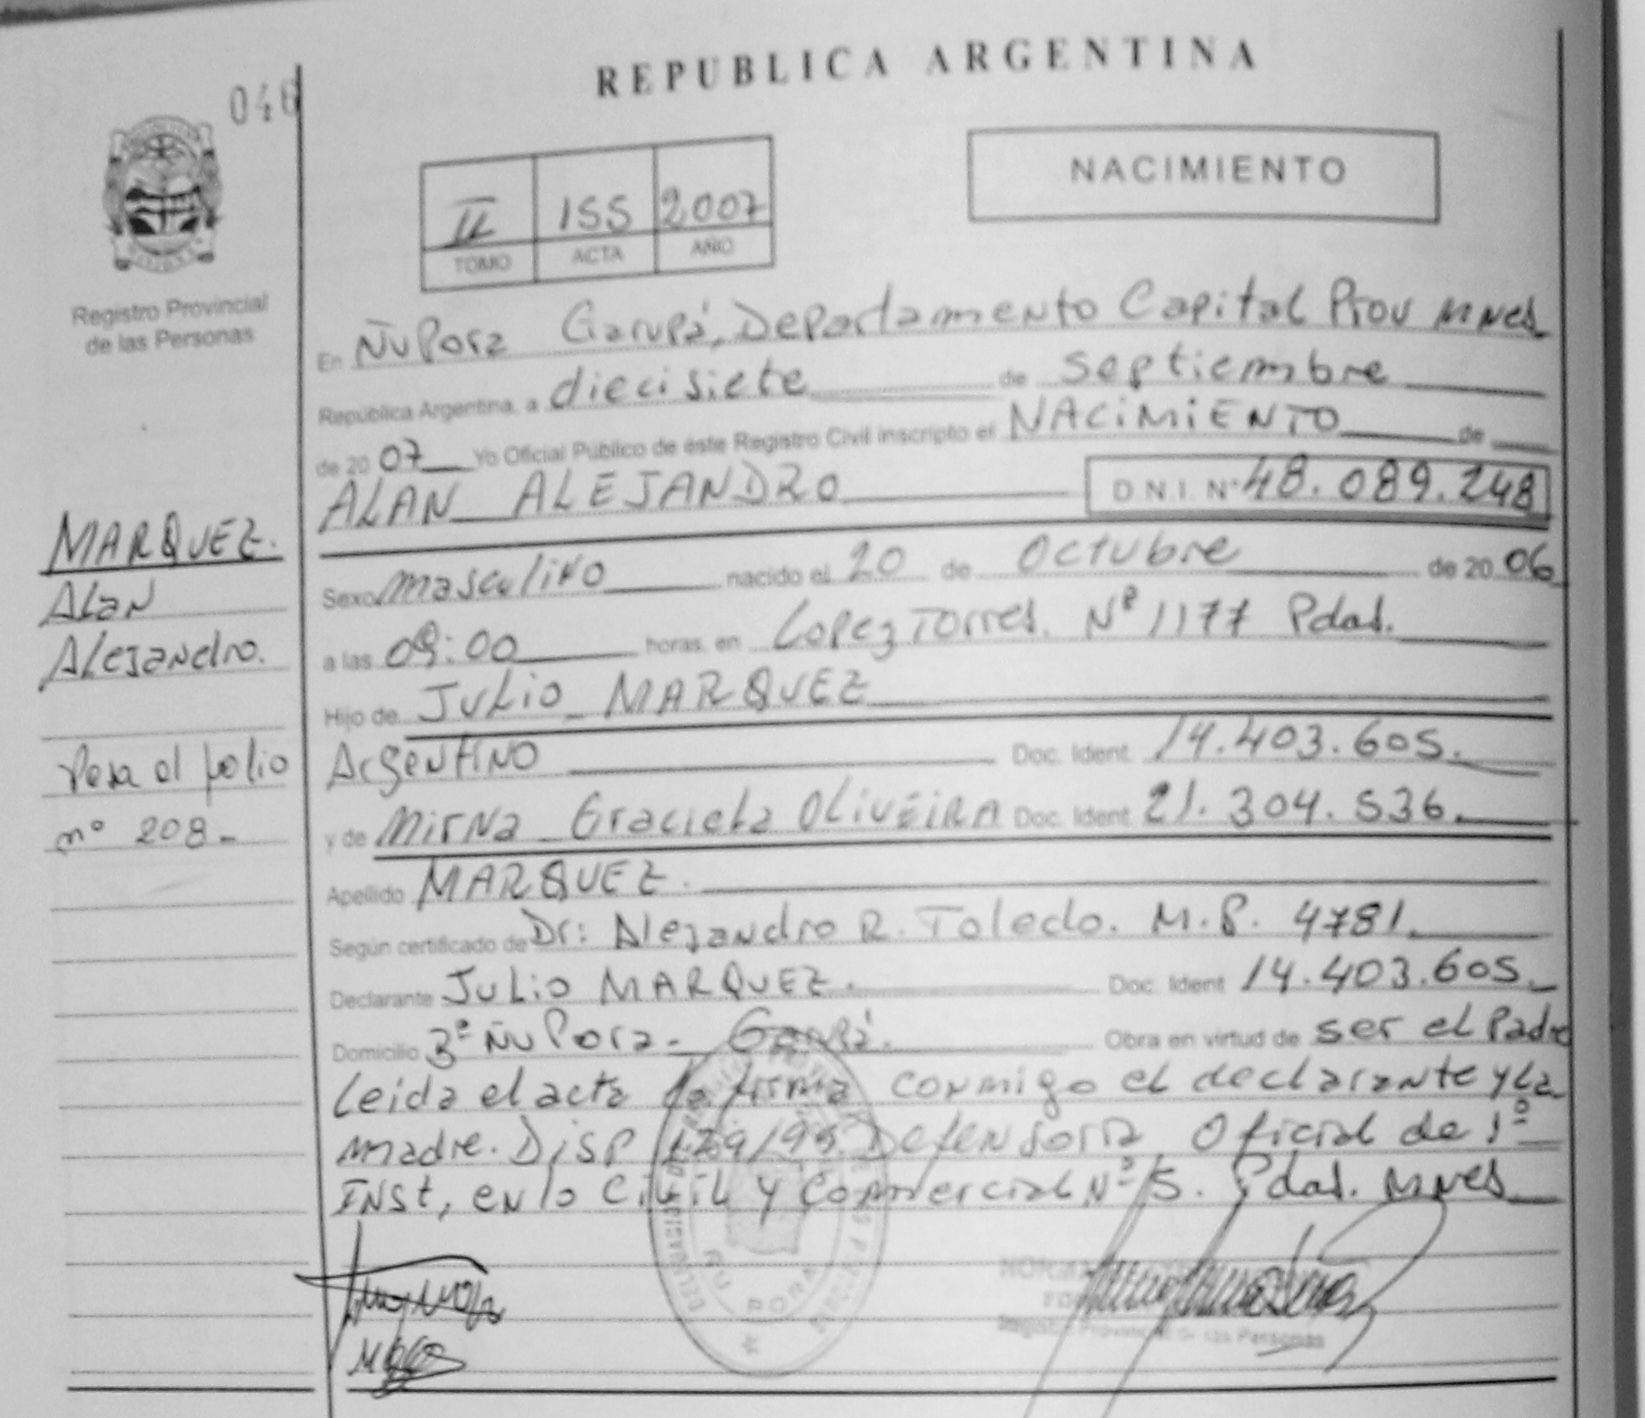 REPUBLICA ARGENTINA
046
NACIMIENTO
II 155 2007
TOMO ACTA AÑO
Registro Provincial
de las Personas
En ÑuPora Garupá, Departamento Capital Prov Mnes
República Argentina, a diecisiete de septiembre
de 2007 Yo Oficial Público de éste Registro Civil inscripto el NACIMIENTO de
ALAN ALEJANDRO D.N.I. Nº 48.089.248
MARQUEZ.
Alan
Alejandro.
Sexo masculino nacido el 20 de Octubre de 2006
a las 09:00 horas, en Lopez Torres. Nº 1177 Pdas.
Hijo de Julio MARQUEZ
Argentino Doc. Ident. 14.403.605.
Pasa al folio
nº 208-
y de Mirna Graciela OLIVEIRA Doc. Ident. 21.304.536.
Apellido MARQUEZ.
Según certificado de Dr: Alejandro R. Toledo. M.P. 4781.
Declarante Julio MARQUEZ. Doc. Ident 14.403.605.
Domicilio 3º ÑuPora. Garupá. Obra en virtud de ser el Padre
Leida el acta la firma conmigo el declarante y la
madre. Disp Defensoria Oficial de 1º
INSt, en lo Civil y Comercial Nº 5. Pdas. Mnes
DELEGACION
ÑU PORA
Registro Provincial de las Personas